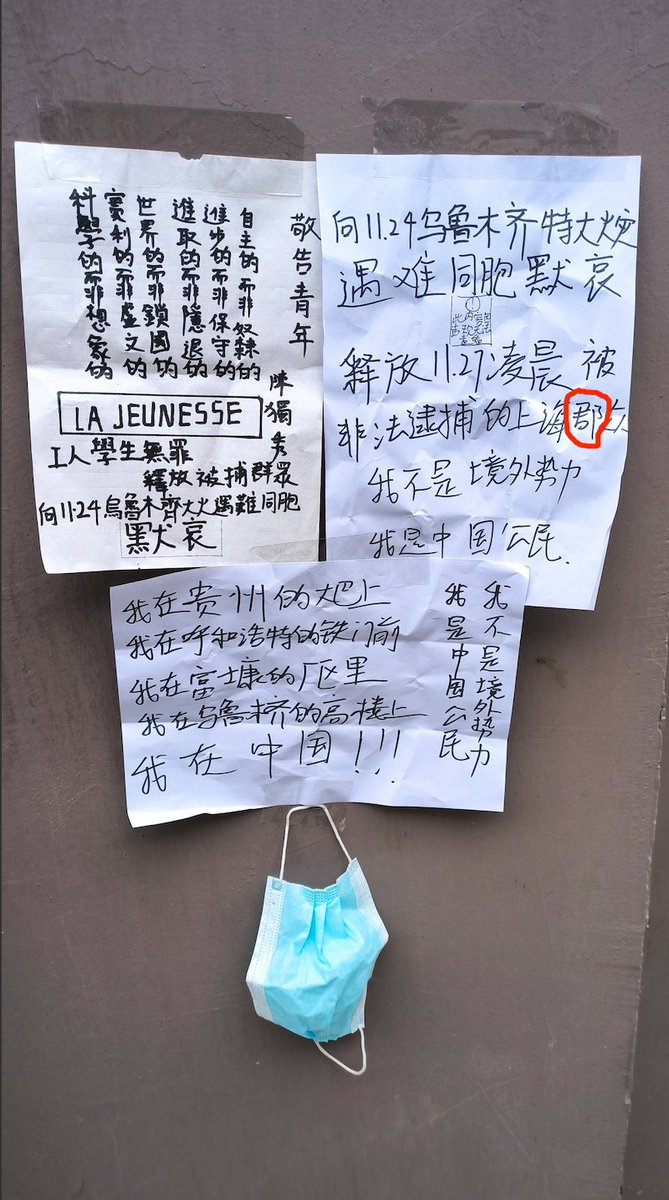 敬告青年
陳獨秀
自主的而非奴隸的
進步的而非保守的
進取的而非隱退的
世界的而非鎖國的
實利的而非虛文的
科學的而非想象的
LA JEUNESSE
工人學生無罪
釋放被捕群眾
向11·24烏魯木齊大火遇難同胞
默哀
向11.24乌鲁木齐特大火灾
遇难同胞默哀
释放11.27凌晨被
非法逮捕的上海郡众
我不是境外势力
我是中国公民.
我在贵州的大巴上
我在呼和浩特的铁门前
我在富士康的厂区里
我在乌鲁木齐的高楼上
我在中国!!!
我不是境外势力
我是中国公民